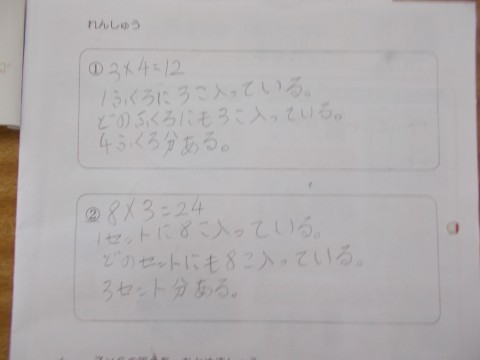 れんしゅう
① 3×4=12
1ふくろに3こ入っている。
どのふくろにも3こ入っている。
4ふくろ分ある。
② 8×3=24
1セットに8こ入っている。
どのセットにも8こ入っている。
3セット分ある。